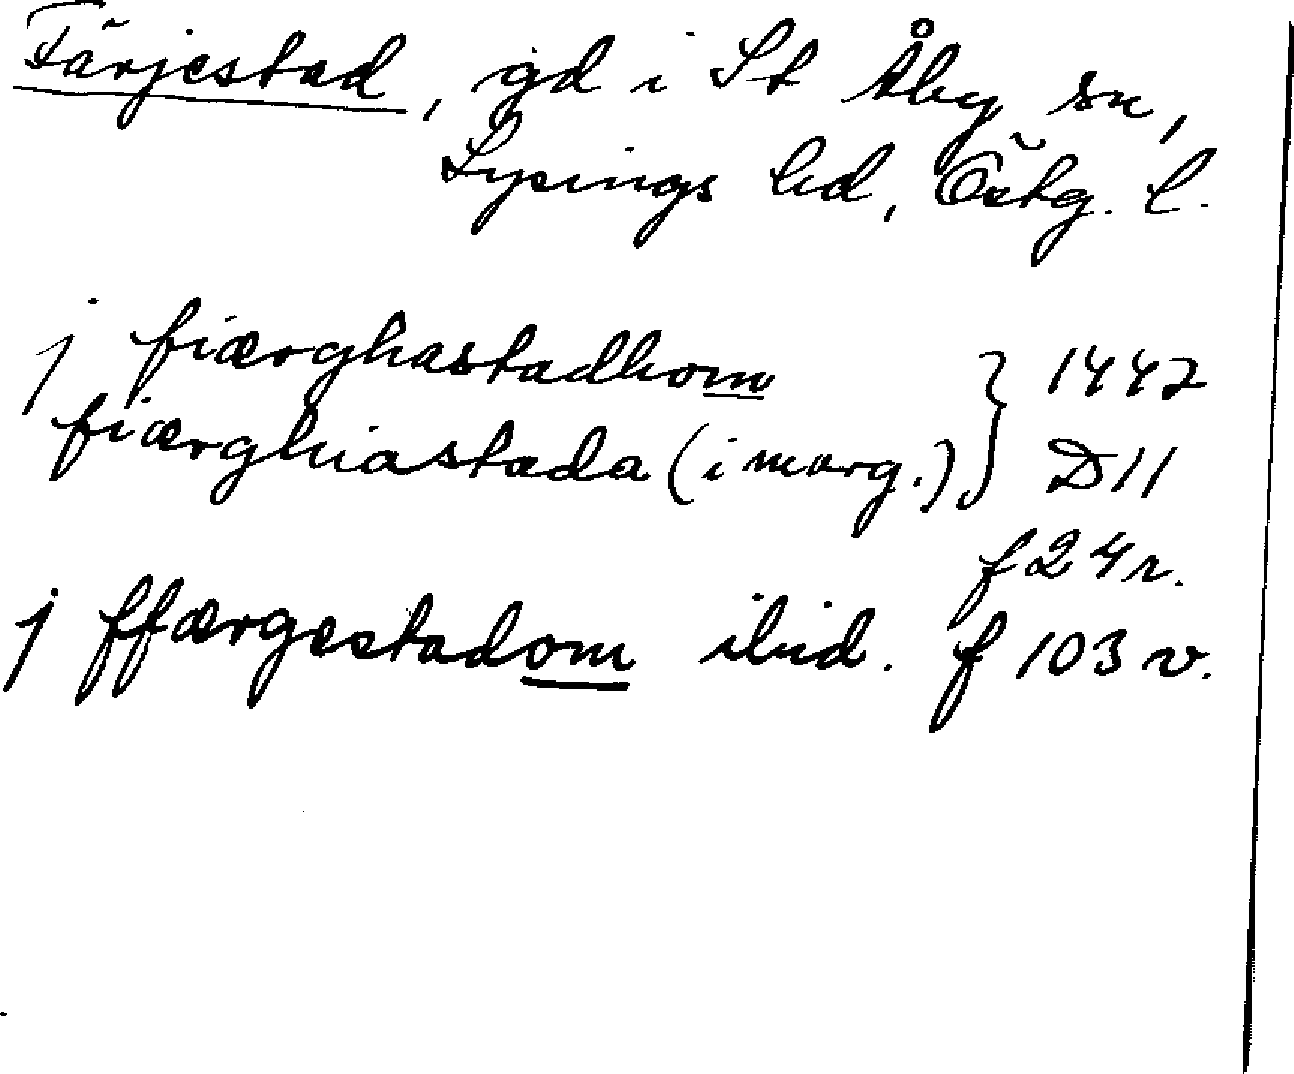 Färjestad, gd i St Åby sn,
Lysings hd, Östg. l.
j fiærghastadhom } 1442
fiærghiastada (i marg.) } D 11
f 24 r.
j ffærgestadom ibid. f 103 v.